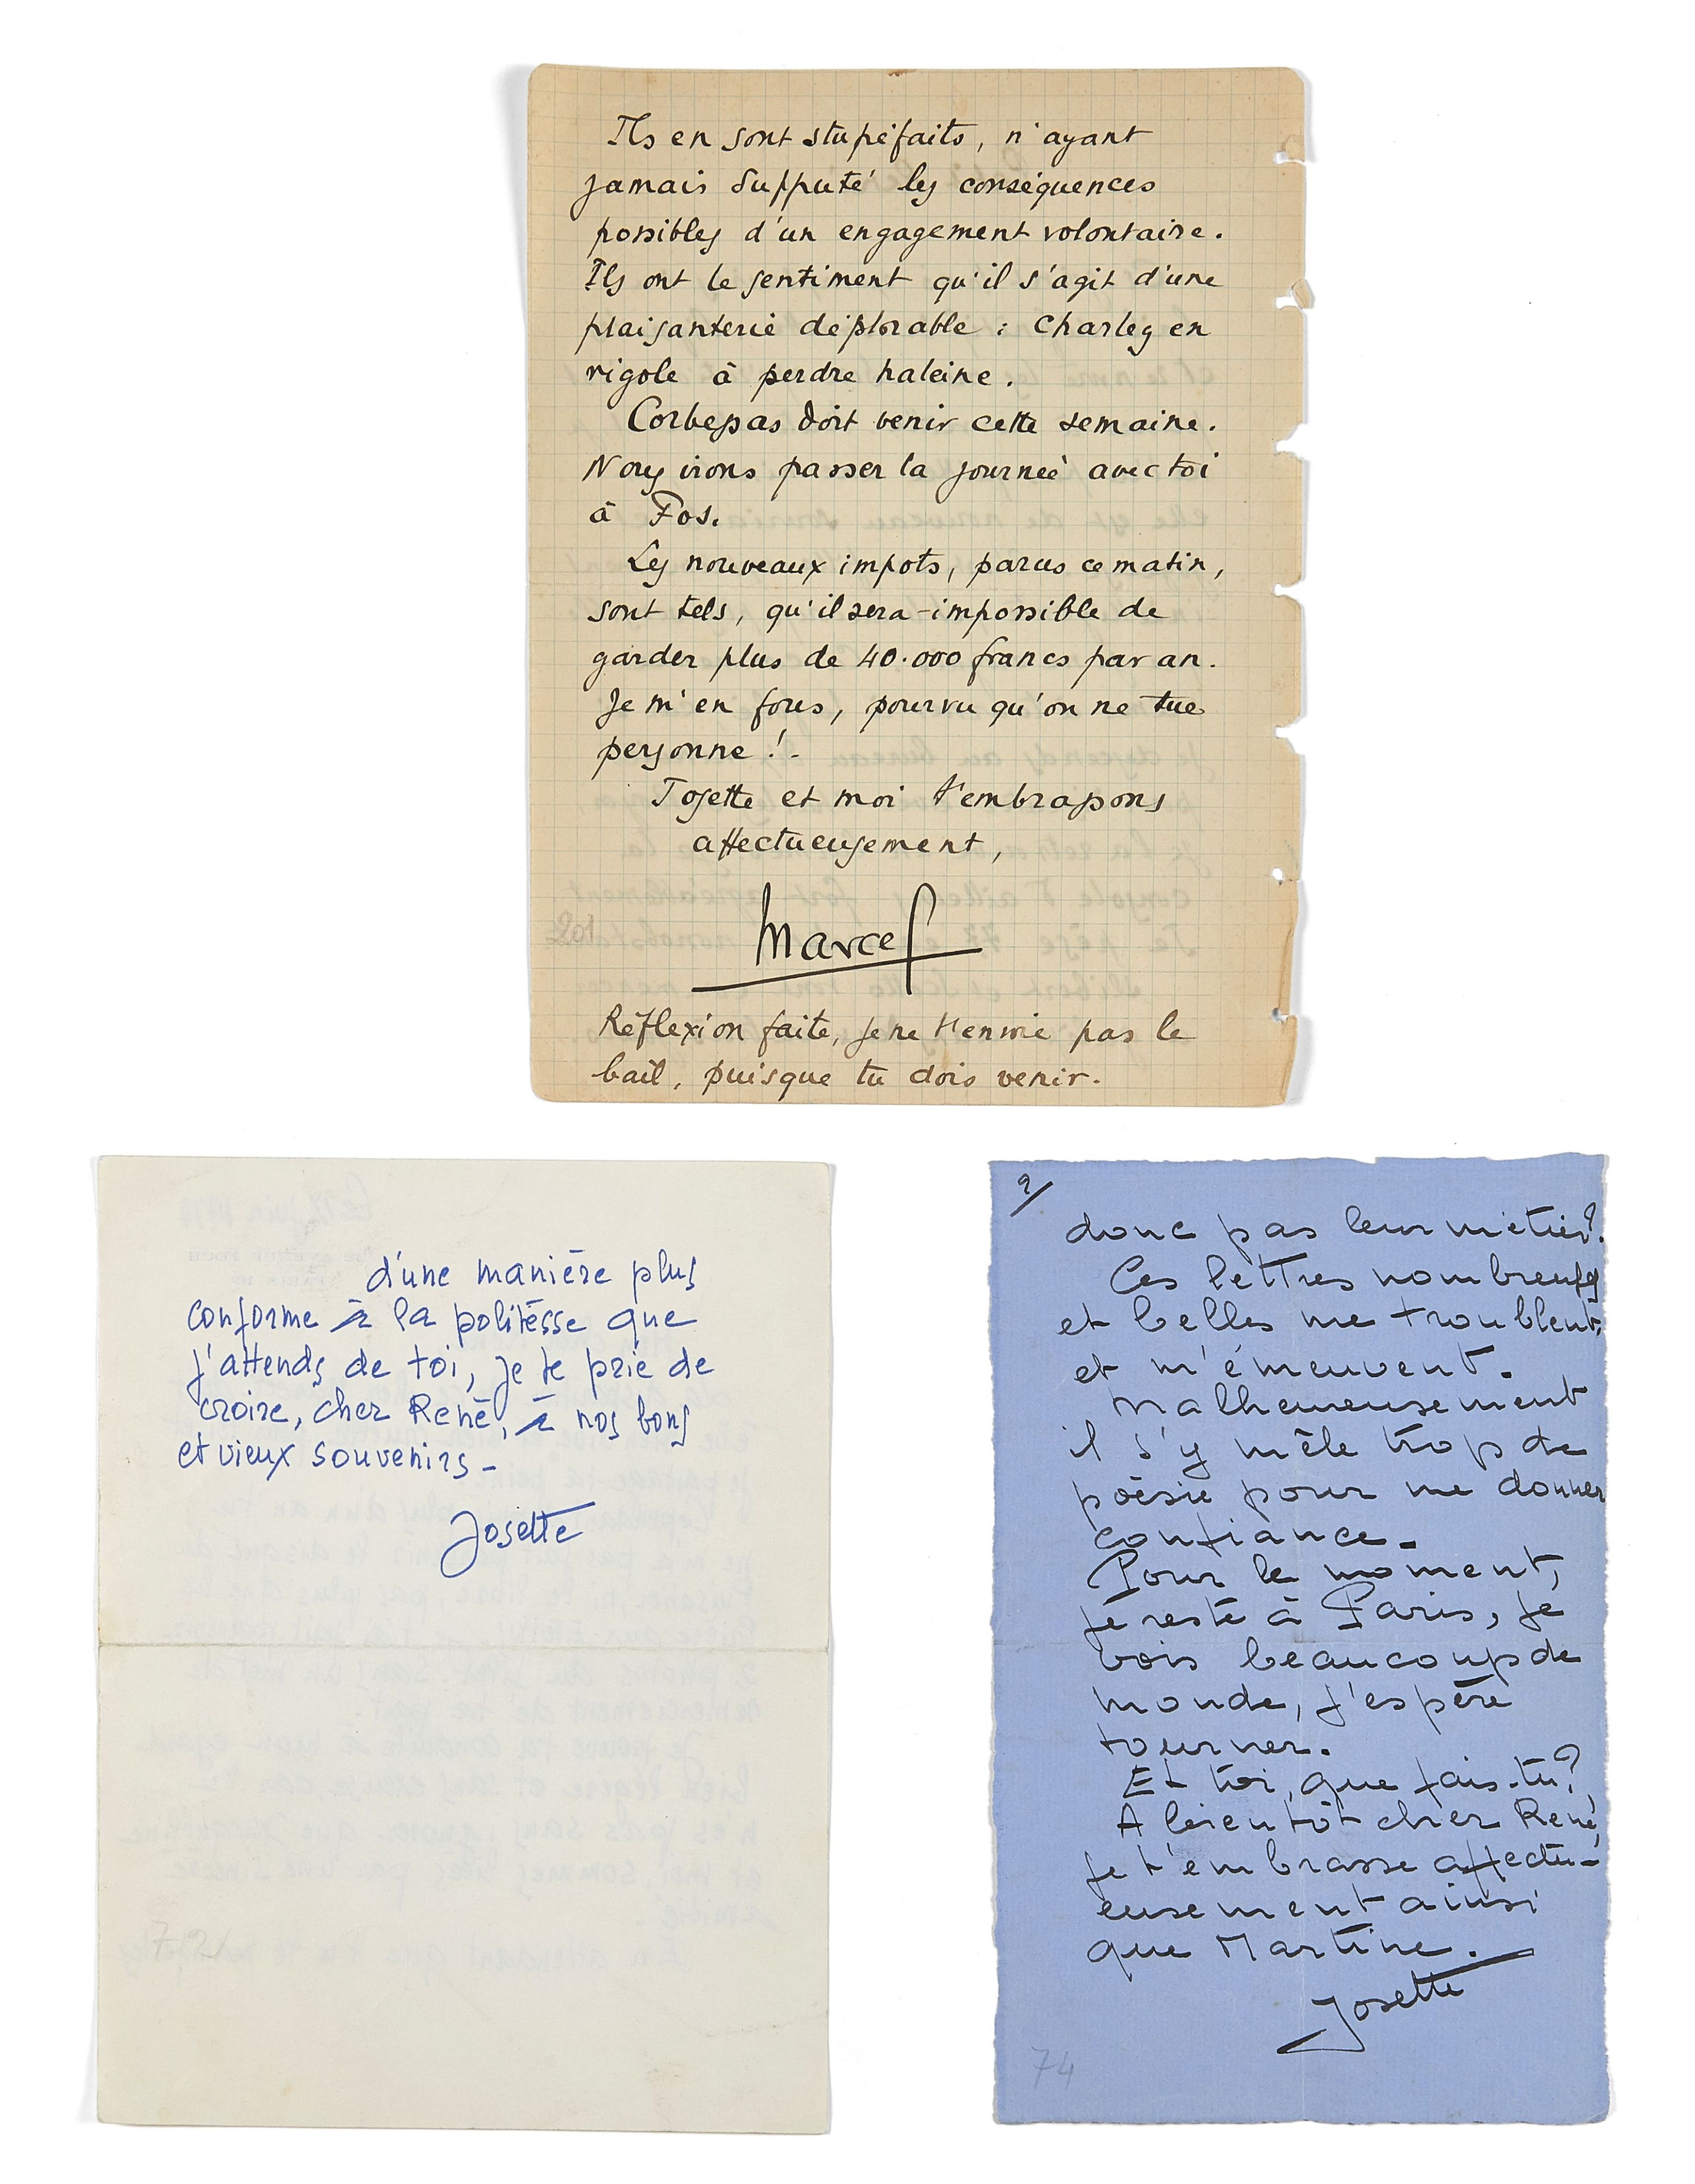 Ils en sont stupéfaits, n'ayant
jamais supputé les conséquences
possibles d'un engagement volontaire.
Ils ont le sentiment qu'il s'agit d'une
plaisanterie déplorable : Charley en
rigole à perdre haleine.
Corbepas doit venir cette semaine.
Nous irons passer la journée avec toi
à Fos.
Les nouveaux impots, parus ce matin,
sont tels, qu'il sera impossible de
garder plus de 40.000 francs par an.
Je m'en fous, pourvu qu'on ne tue
personne !.
Josette et moi t'embrassons
affectueusement,
Marcel
201
Réflexion faite, je ne t'envoie pas le
bail, puisque tu dois venir.
d'une manière plus
conforme à la politésse que
j'attends de toi, je te prie de
croire, cher René, à nos bons
et vieux souvenirs -
Josette
2/
donc pas leur métier?
Ces lettres nombreuses
et belles me troublent
et m'émeuvent.
Malheureusement
il s'y mêle trop de
poésie pour me donner
confiance.
Pour le moment,
je reste à Paris, je
vois beaucoup de
monde, j'espère
tourner.
Et toi, que fais-tu?
A bientôt cher René,
je t'embrasse affectu-
eusement ainsi
que Martine.
Josette
74